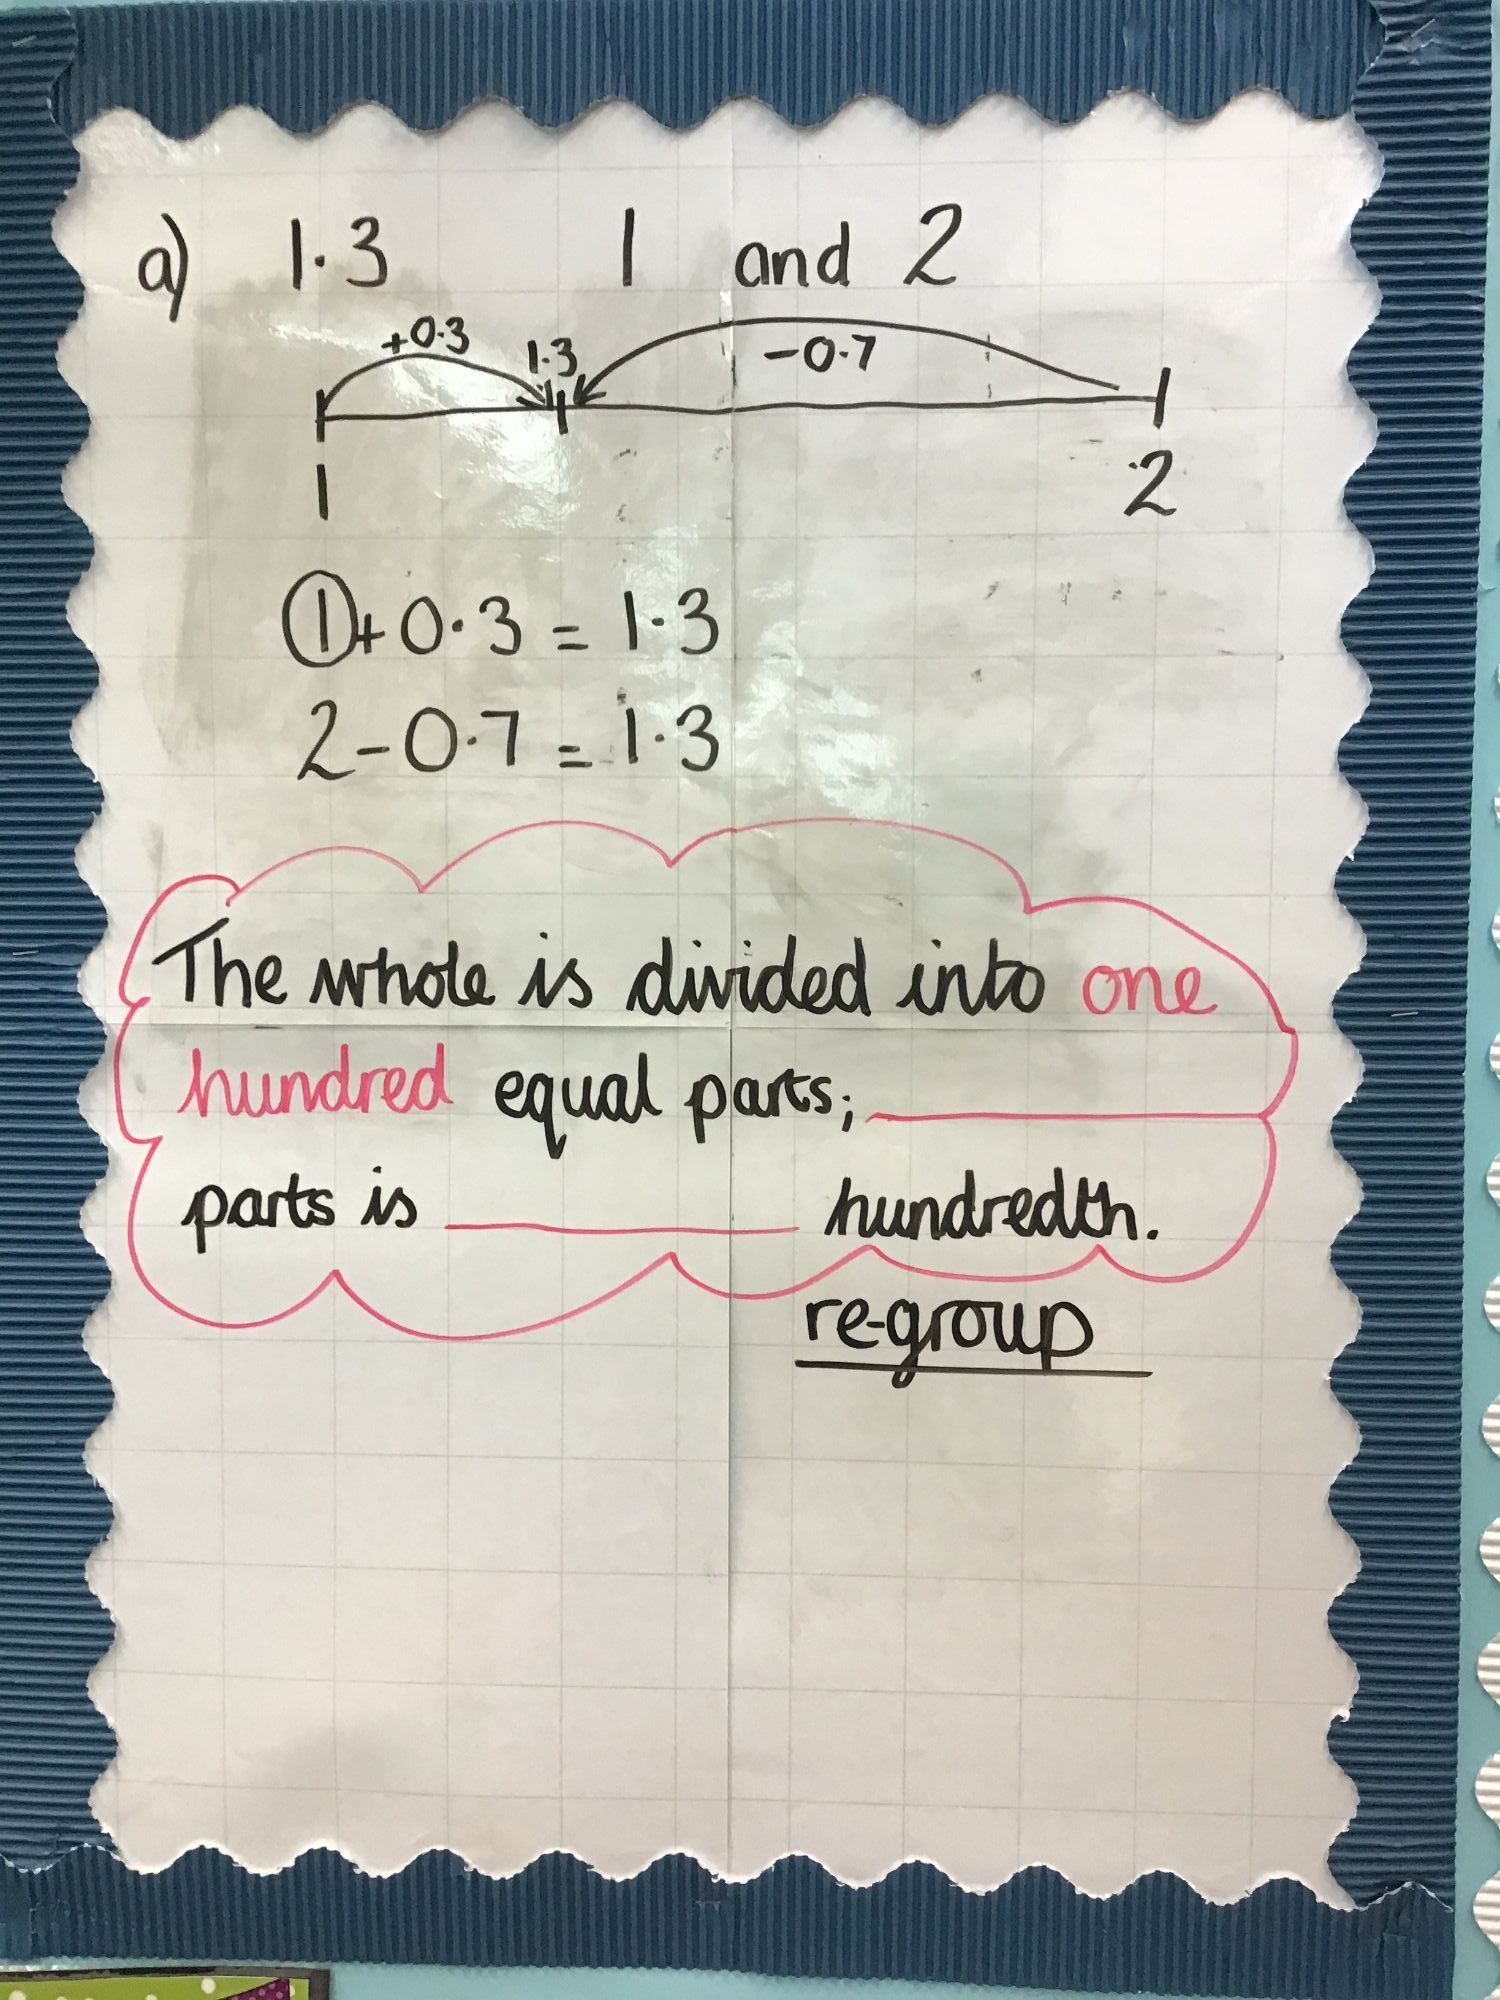 a) 1.3 1 and 2
+0.3 1.3 -0.7
1 2
1+0.3 = 1.3
2-0.7 = 1.3
The whole is divided into one
hundred equal parts; ________
parts is ________ hundredth.
re-group